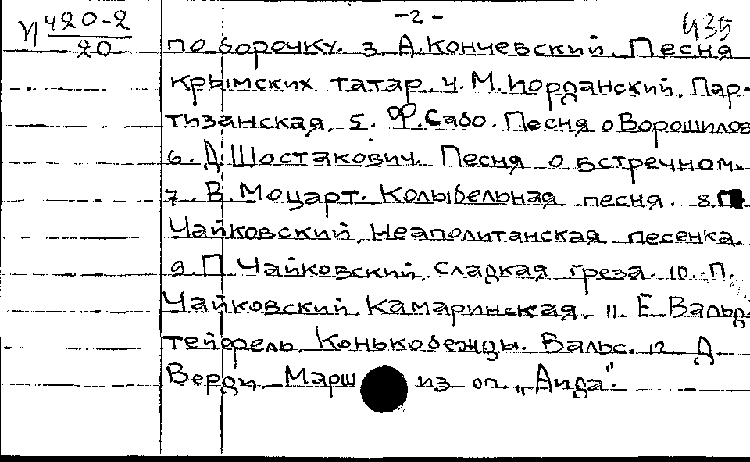 И 420-2
20
-2-
435
по борочку. 3. А. Кончевский. Песня
крымских татар. 4. М. Иорданский. Пар-
тизанская. 5. Ф. Сабо. Песня о Ворошилов
6. Д. Шостакович. Песня о встречном.
7. В. Моцарт. Колыбельная песня. 8. П
Чайковский. Неаполитанская песенка.
9. П. Чайковский. Сладкая греза. 10. П.
Чайковский. Камаринская. 11. Е. Вальд-
тейфель. Конькобежцы. Вальс. 12. Д.
Верди. Марш из оп. „Аида".